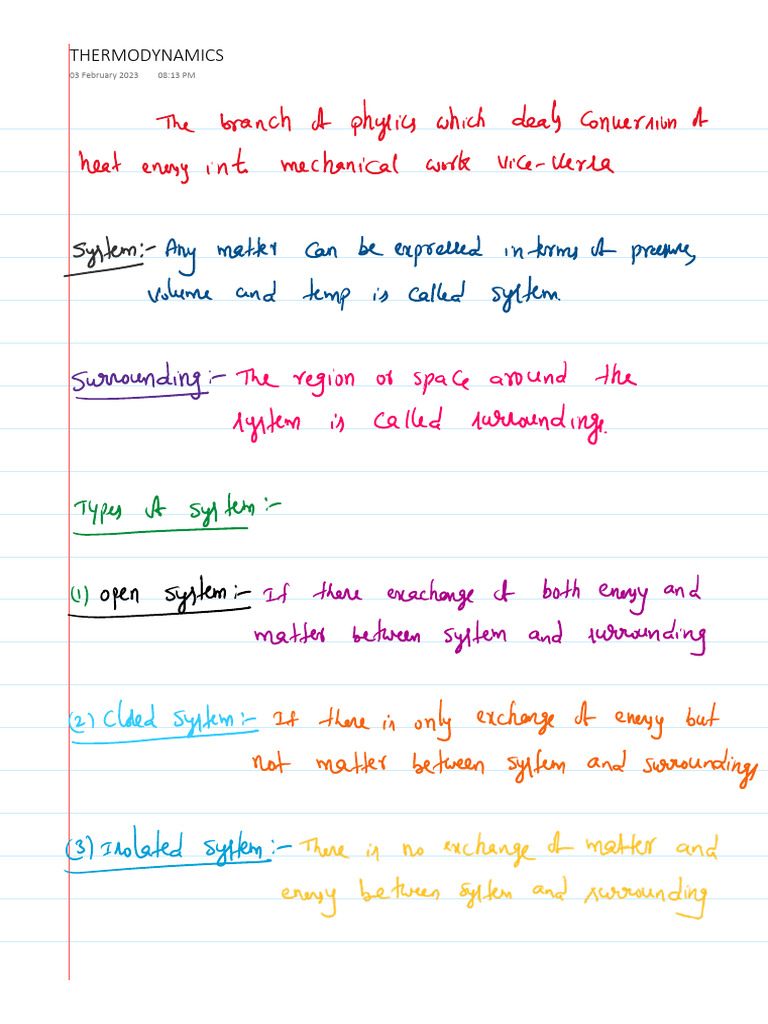 THERMODYNAMICS
03 February 2023 08:13 PM
The branch of physics which deals conversion of
heat energy into mechanical work vice-versa
System:- Any matter can be expressed in terms of pressure,
volume and temp is called system.
Surrounding:- The region or space around the
system is called surroundings.
Types of system:-
(1) open system:- If there exachange of both energy and
matter between system and surrounding
(2) Closed system:- If there is only exchange of energy but
not matter between system and surroundings
(3) Isolated system:- There is no exchange of matter and
energy between system and surrounding